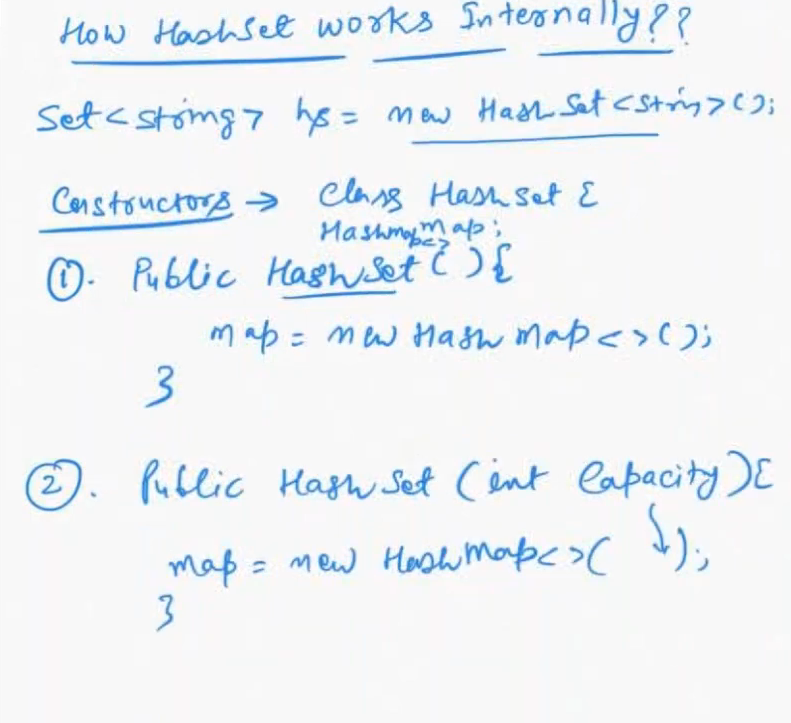 How HashSet works Internally??
Set<String> hs = new HashSet<String>();
Constructors → Class Hashset {
Hashmap<> map;
①. Public HashSet(){
map = new Hashmap<>();
}
②. Public HashSet (int Capacity){
map = new Hashmap<>( ↓);
}